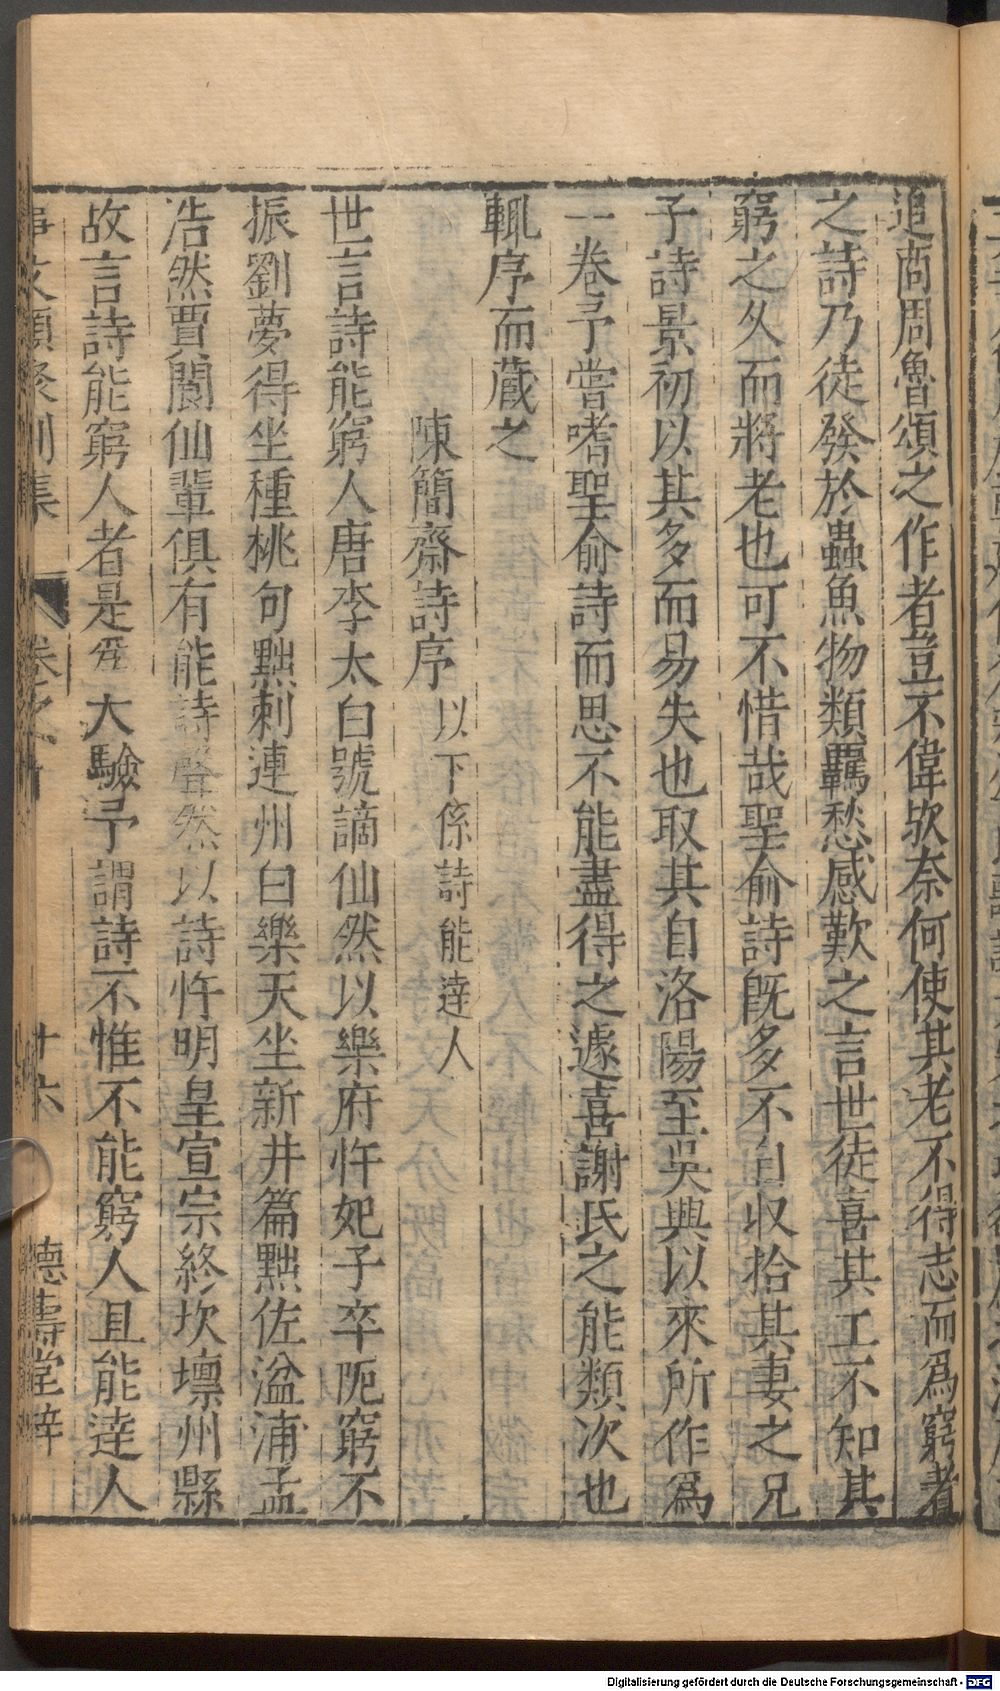 追商周魯頌之作者豈不偉歟奈何使其老不得志而爲窮者
之詩乃徒發於蟲魚物類羈愁感歎之言世徒喜其工不知其
窮之久而將老也可不惜哉聖俞詩既多不自収拾其妻之兄
子詩景初以其多而易失也取其自洛陽至吳興以來所作爲
一卷予嘗嗜聖俞詩而思不能盡得之遽喜謝氏之能類次也
輒序而藏之
陳簡齋詩序 以下係詩能達人
世言詩能窮人唐李太白號謫仙然以樂府忤妃子卒阨窮不
振劉夢得坐種桃句黜刺連州白樂天坐新井篇黜佐湓浦孟
浩然賈閬仙輩俱有能詩聲然以詩忤明皇宣宗終坎壈州縣
故言詩能窮人者是爲大驗予謂詩不惟不能窮人且能達人
事文類聚別集 卷之 十六 德壽堂梓
Digitalisierung gefördert durch die Deutsche Forschungsgemeinschaft - DFG